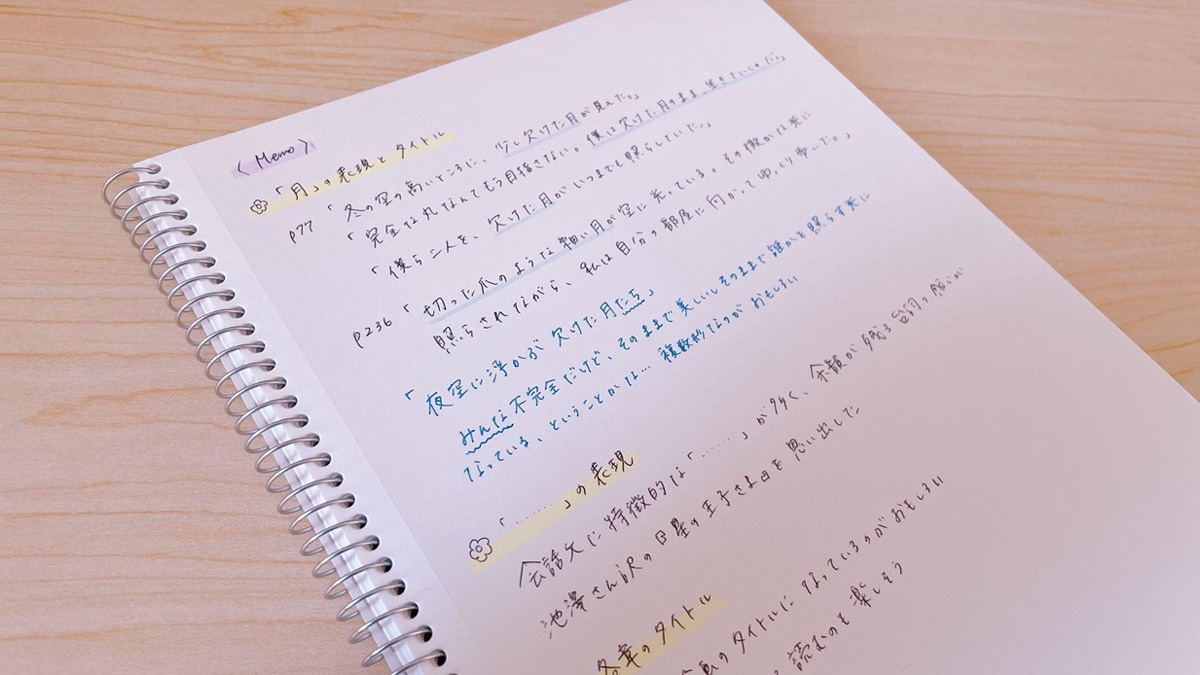 〈 Memo 〉
「月」の表現とタイトル
p77 「冬の空の高いところに、少し欠けた月が見えた。」
「完全な丸なんてもう目指さない。僕は欠けた月のまま、生きていくのだ。」
「僕ら二人を、欠けた月がいつまでも照らしていた。」
p236 「切った爪のような細い月が空に光っている。その微かな光に
照らされながら、私は自分の部屋に向かってゆっくり歩いた。」
「夜空に浮かぶ欠けた月たち」
みんな不完全だけど、そのままで美しいしそのままで誰かを照らす光に
なっている、ということかな… 複数形なのがおもしろい
「……」の表現
会話文に特徴的な「……」が多く、余韻が残る台詞の感じが
池澤さん訳の星の王子さまを思い出した
各章のタイトル
のタイトルになっているのがおもしろい
読むのも楽しそう